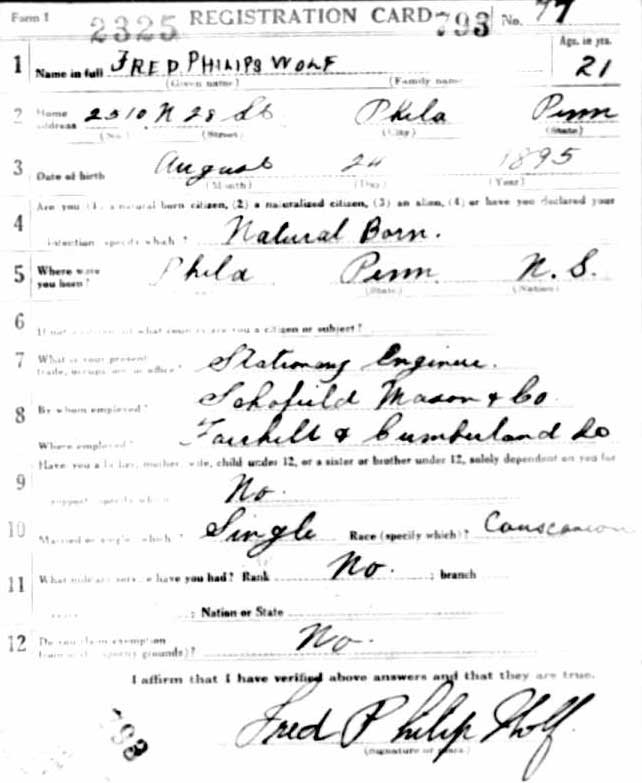 Form 1 2325 REGISTRATION CARD 793 No. 77
Age, in yrs.
1 Name in full FRED PHILIPS WOLF 21
(Given name) (Family name)
2 Home address 2510 N 28 St Phila Penn
(No.) (Street) (City) (State)
3 Date of birth August 24 1895
(Month) (Day) (Year)
Are you (1) a natural born citizen, (2) a naturalized citizen, (3) an alien, (4) or have you declared your
4 intention, specify which? Natural Born.
5 Where were you born? Phila Penn N. S.
(State) (Nation)
6 If not a citizen of what country are you a citizen or subject?
7 What is your present trade, occupation or office? Stationary Engineer.
8 By whom employed? Schofield Mason & Co.
Where employed? Fairhill & Cumberland
Have you a father, mother, wife, child under 12, or a sister or brother under 12, solely dependent on you for
9 support, specify which No.
10 Married or single, which? Single Race (specify which)?
11 What military service have you had? Rank No. ; branch
; Nation or State
12 Do you claim exemption from draft (specify grounds)? No.
I affirm that I have verified above answers and that they are true.
Fred Philip Wolf
(Signature or mark)
793